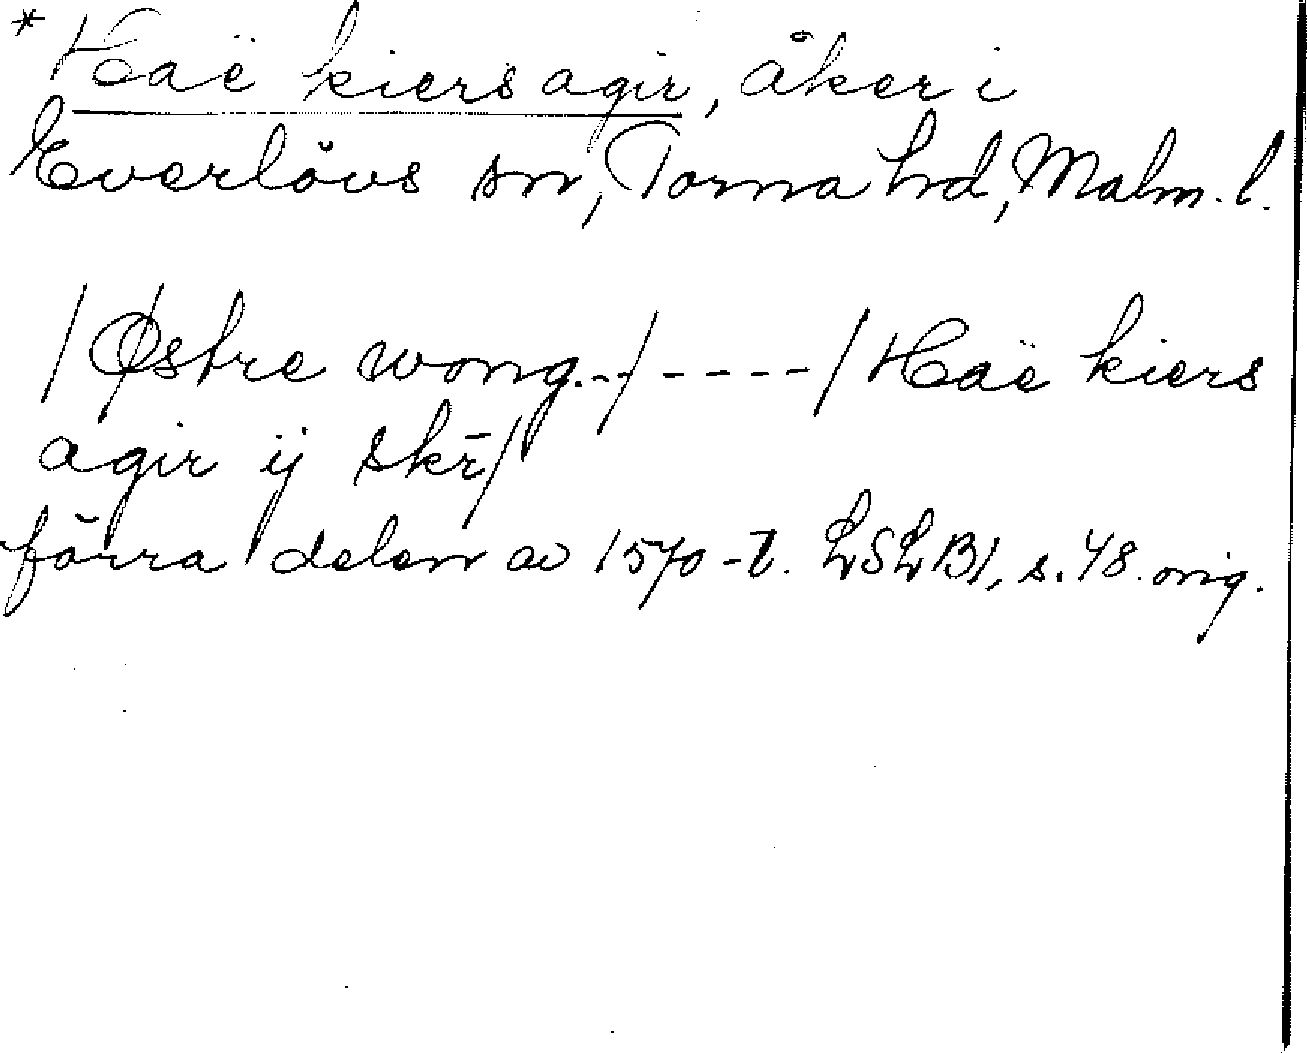 * Haë kiers agir, åker i
Everlövs sn, Torna hd, Malm. l.
/Østre wong.--/----/Haë kiers
agir ij skr̄/
förra delen av 1570-t. LSLB1, s. 48. orig.